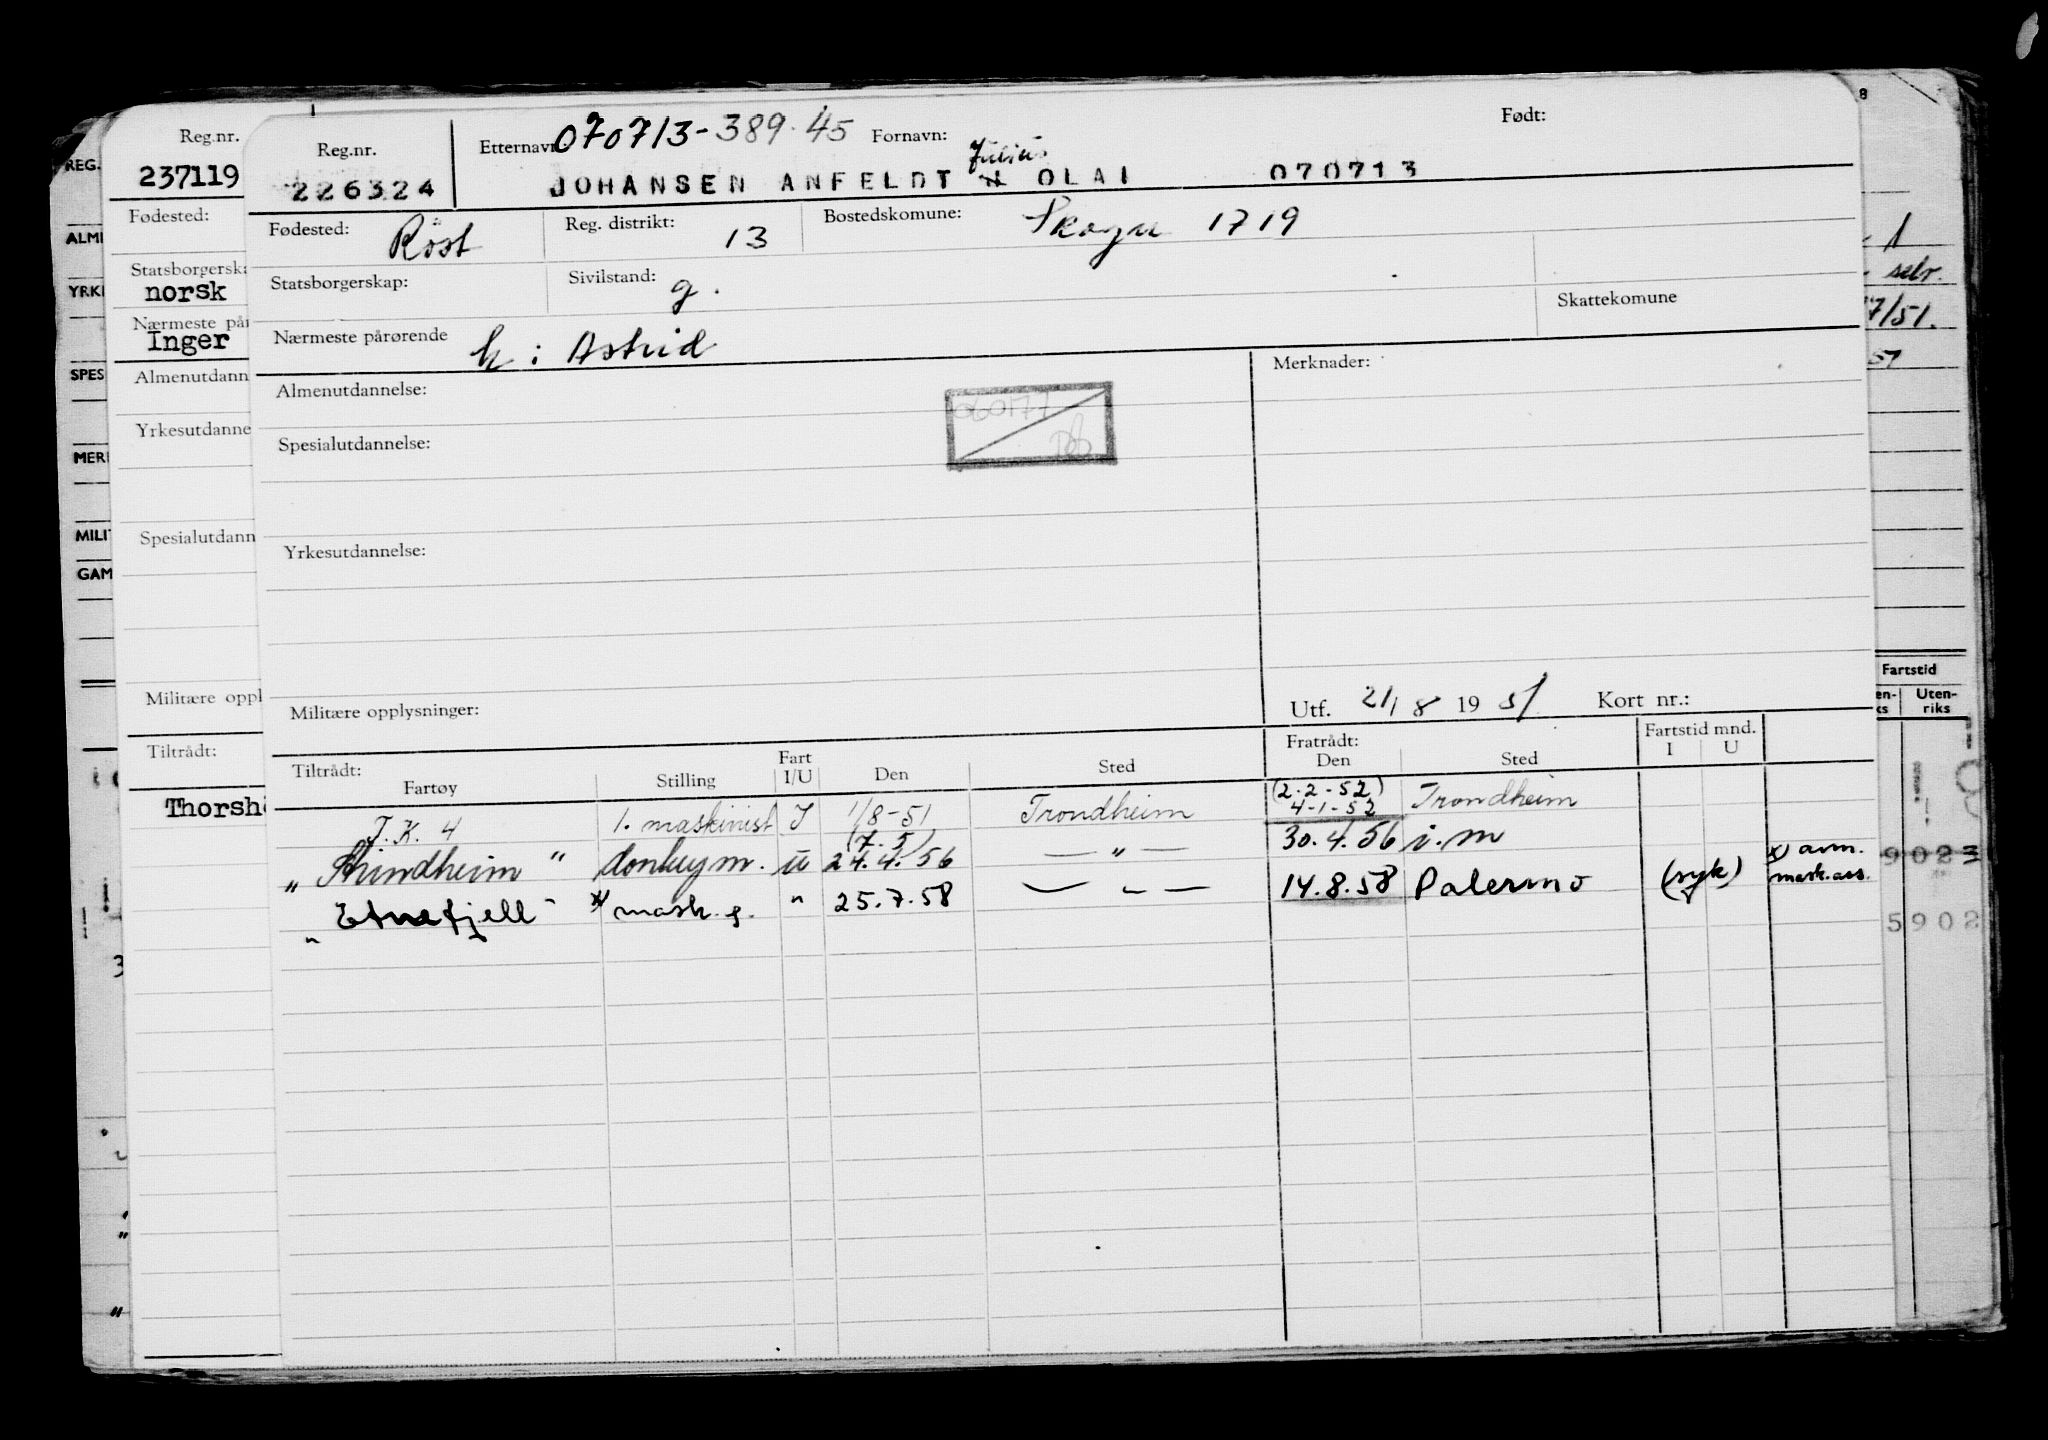 Reg.nr. 226324
Etternavn 070713-389.45 Fornavn: Født:
Julius
JOHANSEN ANFELDT N OLAI 070713
Fødested: Röst Reg. distrikt: 13 Bostedskomune: Skogn 1719
Statsborgerskap: Sivilstand: g.
Skattekomune
Nærmeste pårørende h: Astrid
Almenutdannelse: Merknader:
060177
Spesialutdannelse:
Yrkesutdannelse:
Militære opplysninger: Utf. 21/8 19 51 Kort nr.:
Tiltrådt: Fratrådt: Fartstid mnd.
Fartøy Stilling Fart I/U Den Sted Den Sted I U
(2-2-52)
T.K. 4 1. maskinist I 1/8-51 Trondheim 4-1-52 Trondheim
(7.5)
„ Shindheim " donkeym. u 24.4.56 — " — 30.4.56 i.m
„ Etnefjell " x) mask.g. " 25.7.58 — " — 14.8.58 Palermo (syk) x) avm. mask.ass.
Reg.nr.
237119
Fødested:
Statsborgerska
norsk
Nærmeste pår
Inger
Almenutdann
Yrkesutdanne
Spesialutdann
Militære oppl
Tiltrådt:
Thorshø
REG.
ALM
YRK
SPES
MER
MILIT
GAM
8
1
selv.
7/51.
51
Fartstid
en-ks Uten-riks
9023
5902